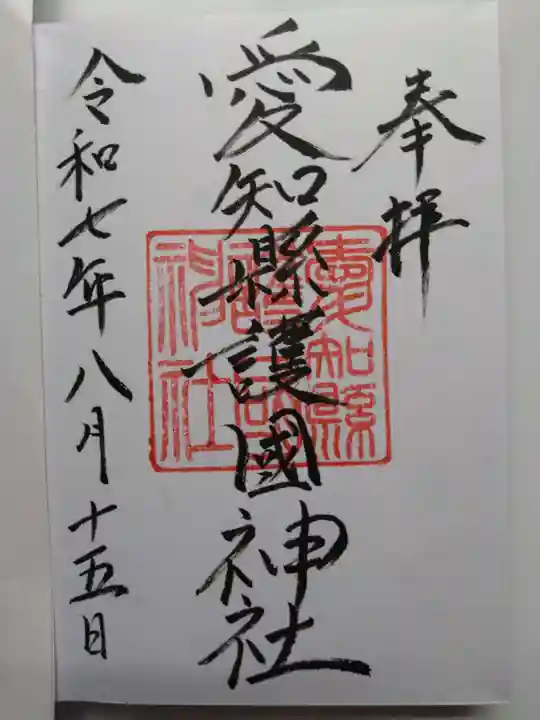 奉拝
愛知縣護國神社
愛知縣
護國
神社
令和七年八月十五日